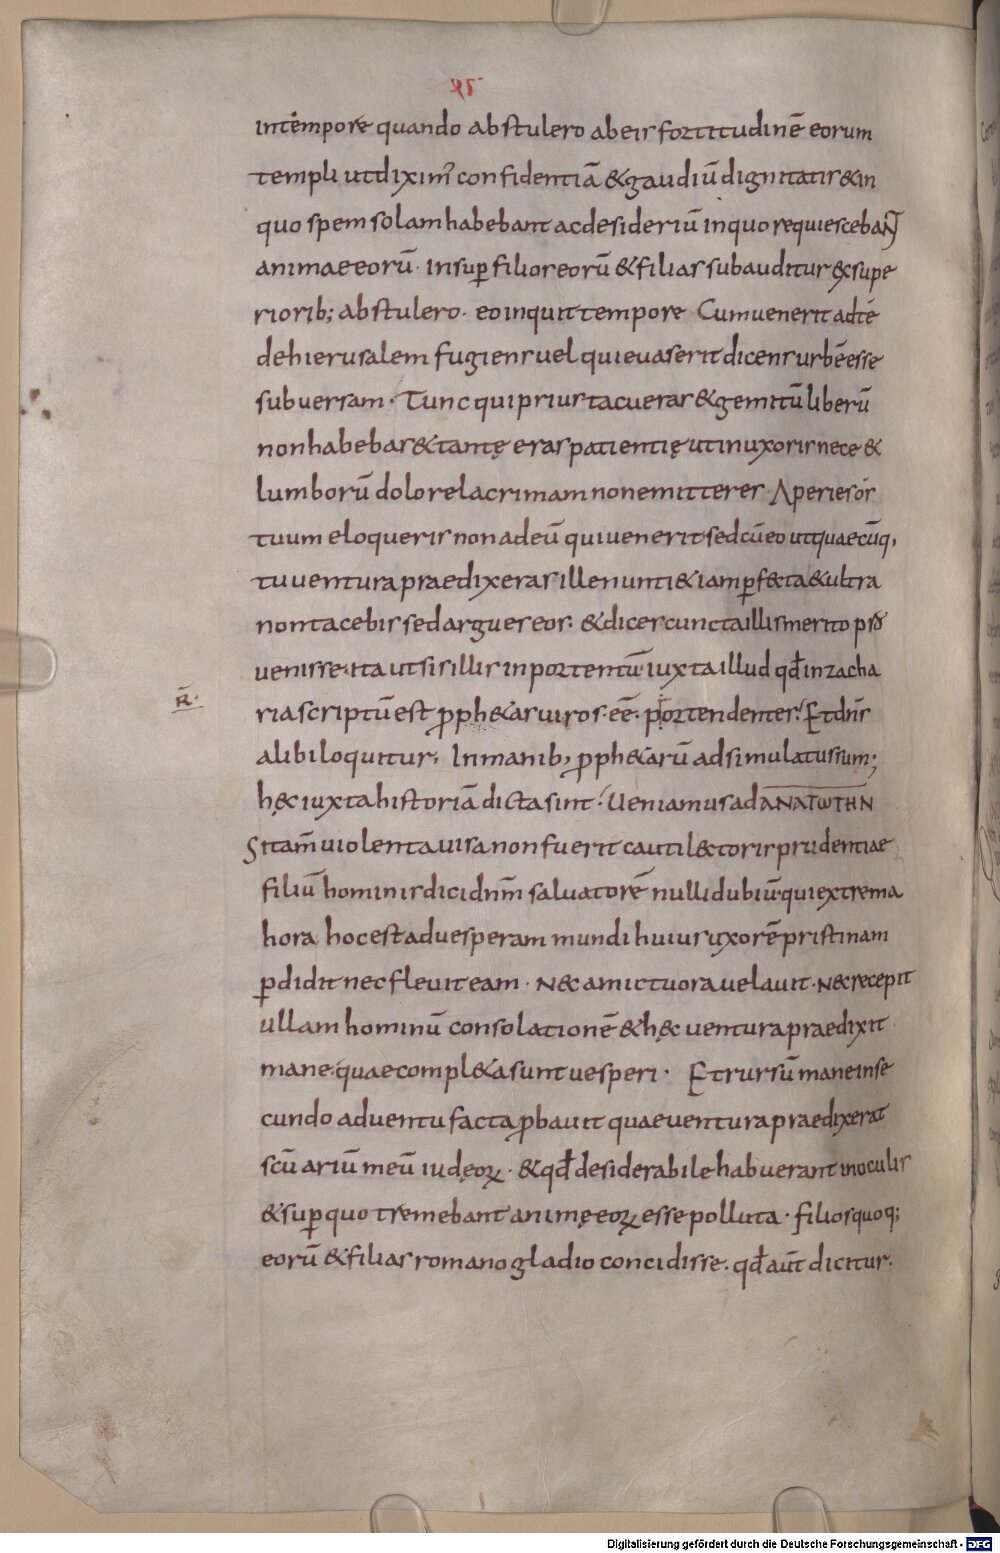 intempore quando abstulero abeis fortitudinē eorum
templi utdiximꝰ confidentiā &gaudiū dignitatis&in
quo spem solam habebant acdesideriū inquo requiescebaɴ̄
animaeeorū· insuꝑ filioseorū &filias subauditur &supe
riorib; abstulero· eo inquit tempore Cumuenerit adte
dehierusalem fugiens uel quieuaserit dicens urbē esse
subuersam· Tunc quiprius tacueras &gemitū liberū
nonhabebas &tantę eras patientię utinuxoris nece &
lumborū dolore lacrimam nonemitteres· Aperies ós
tuum eloqueris non adeū quiuenerit sedcū eo utquaecūq,
tu uentura praedixeras ille nunti& iam ꝑf&ta &ultra
nontacebis sed argueres eos· &dices cuncta illis merito ꝑsꝺ
uenisse· ita utsis illis inportentū· iuxta illud qđ inzacha
ria scriptū est ꝓph&as uiros· eē· portendentes· Et dn̄s
alibi loquitur, Inmanib, ꝓph&arū adsimulatus sum;
hęc iuxta historiā dicta sint· Ueniamus ad ΑΝΑΓΩΓΗΝ
Si tam̄ uiolenta uisa nonfuerit cauti lectoris prudentiae
filiū hominis dici dnm̄ saluatorē nulli dubiū· qui extrema
hora hoc est aduesperam mundi huius uxorē pristinam
ꝑdidit nec fleuit eam· Nec amictu ora uelauit· Nec recepit
ullam hominū consolationē &hęc uentura praedixit
mane· quae compl&a sunt uesperi· Et rursū mane inse
cundo aduentu facta ꝓbauit quae uentura praedixerat
scūariū meū iudęoꝝ· &qđ desiderabile habuerant inoculis
&suꝑ quo tremebant animę eoꝝ esse polluta· filios quoq;
eorū &filias romano gladio concidisse· qđ aūt dicitur·
R̄·
Digitalisierung gefördert durch die Deutsche Forschungsgemeinschaft - DFG